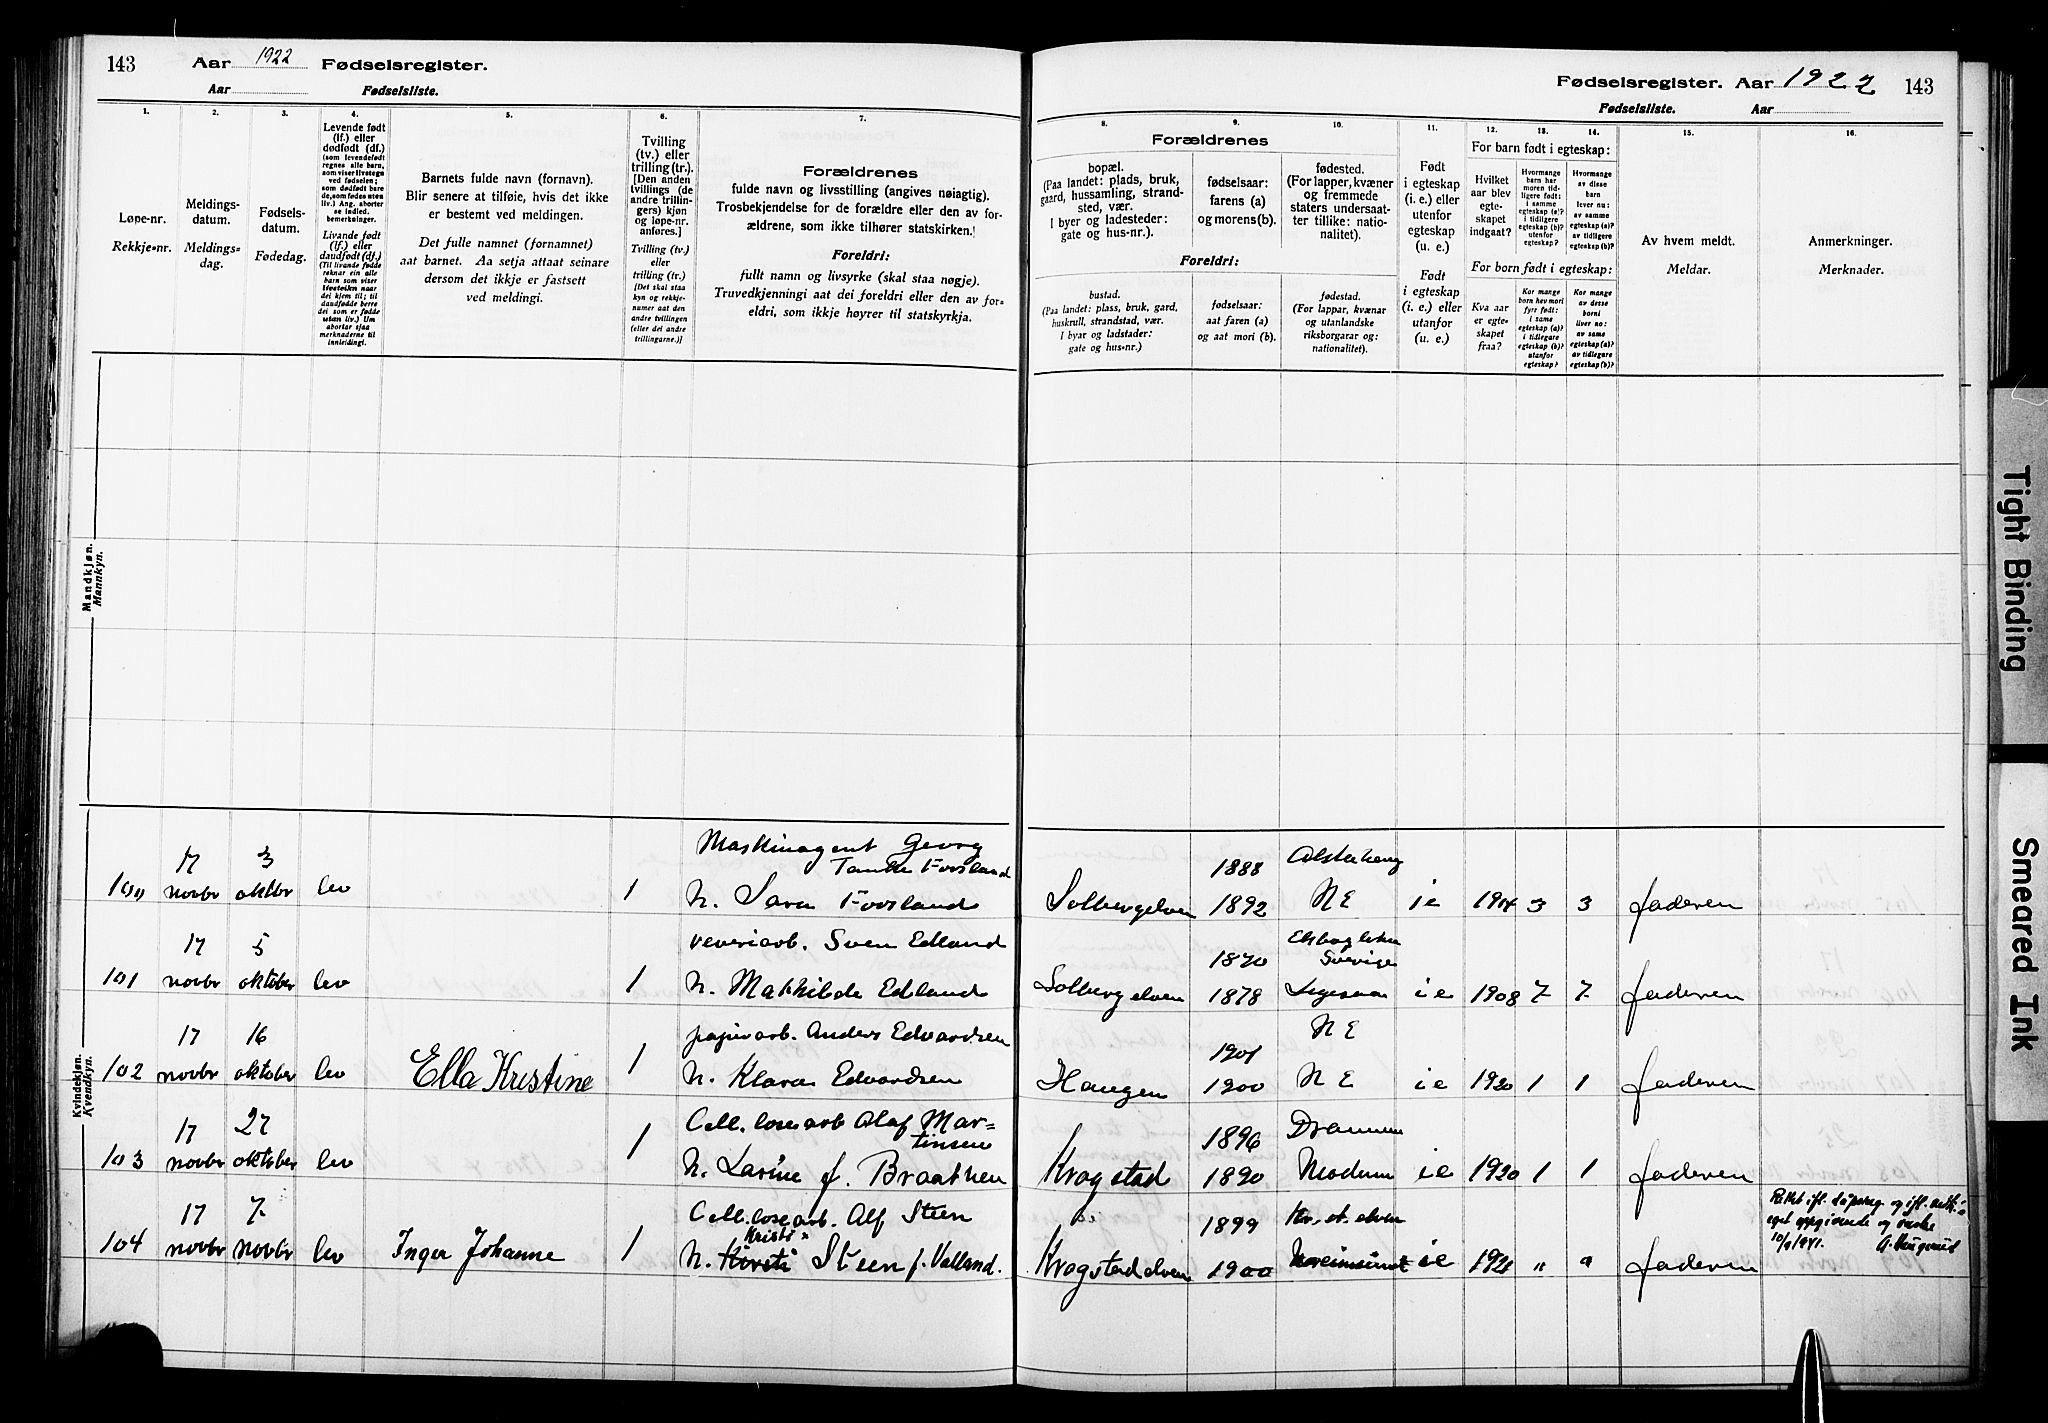 143 Aar 1922 Fødselsregister.
Aar Fødselsliste.
Fødselsregister. Aar 1922 143
Fødselsliste. Aar
1. 2. 3. 4. 5. 6. 7.
Løpe-nr.
Rekkje-nr.
Meldings-
datum.
Meldings-
dag.
Fødsels-
datum.
Fødedag.
Levende født
(lf.) eller
dødfødt (df.)
(som levendefødt
regnes alle barn,
som viser livstegn
ved fødselen;
som dødfødt bare
de, som fødes uten
liv.) Ang. aborter
se indled.
bemerkninger.
Livande fødd
(lf.) eller
daudfødt (df.)
(Til livande fødde
reknar ein alle
born som viser
livsteikn naar
dei kjem til; til
daudfødde berre
dei som er fødde
utan liv.) Um
abortar sjaa
merknaderne til
innleidingi.
Barnets fulde navn (fornavn).
Blir senere at tilføie, hvis det ikke
er bestemt ved meldingen.
Det fulle namnet (fornamnet)
aat barnet. Aa setja attaat seinare
dersom det ikkje er fastsett
ved meldingi.
Tvilling
(tv.) eller
trilling (tr.).
[Den anden
tvillings (de
andre trillin-
gers) kjøn
og løpe-nr.
anføres.]
Tvilling (tv.)
eller
trilling (tr.)
[Det skal staa
kyn og rekkje-
numer aat den
andre tvillingen
(eller dei andre
trillingarne.)]
Forældrenes
fulde navn og livsstilling (angives nøiagtig).
Trosbekjendelse for de forældre eller den av for-
ældrene, som ikke tilhører statskirken.
Foreldri:
fullt namn og livsyrke (skal staa nøgje).
Truvedkjenningi aat dei foreldri eller den av for-
eldri, som ikkje høyrer til statskyrkja.
8. 9. 10. 11. 12. 13. 14. 15. 16.
Forældrenes
bopæl.
(Paa landet: plads, bruk,
gaard, hussamling, strand-
sted, vær.
I byer og ladesteder:
gate og hus-nr.).
fødselsaar:
farens (a)
og morens (b).
fødested.
(For lapper, kvæner
og fremmede
staters undersaat-
ter tillike: natio-
nalitet).
Foreldri:
bustad.
(Paa landet: plass, bruk, gard,
huskrull, strandstad, vær.
I byar og ladstader:
gate og hus-nr.)
fødselsaar:
aat faren (a)
og aat mori (b).
fødestad.
(For lappar, kvænar
og utanlandske
riksborgarar og:
nationalitet).
Født
i egteskap
(i. e.) eller
utenfor
egteskap
(u. e.)
Født
i egteskap
(i. e.) eller
utanfor
(u. e.)
For barn født i egteskap:
Hvilket
aar blev
egte-
skapet
indgaat?
Hvormange
barn har
moren tid-
ligere født:
i samme
egteskap (a)?
i tidligere
egteskap (b)?
utenfor
egteskap?
Hvormange
av disse
barn
lever nu:
av samme
egteskap (a)?
av tidligere
egteskap (b)?
For born født i egteskap:
Kva aar
er egte-
skapet
fraa?
Kor mange
born hev mori
fyrr født:
i same
egteskap (a)?
i tidlegare
egteskap (b)?
utanfor
egteskap?
Kor mange
av desse
borni
liver no:
av same
egteskap (a)?
av tidlegare
egteskap (b)?
Av hvem meldt.
Meldar.
Anmerkninger.
Merknader.
Mandkjøn.
Mannkyn.
Kvindekjøn.
Kvendkyn.
17 3 Maskinagent Georg 1888
100 novbr oktbr lev 1 H. Sara Forsland Solbergelven 1892 N E i e 3 3 faderen
17 5 veveriarb. Sven Edland 1870
101 novbr oktober lev 1 H. Mathilde Edland Solbergelven 1878 i e 1908 7 7 faderen
17 16 papirarb. Anders Edvardsen 1901 N E
102 novbr oktober lev Ella Kristine 1 H. Klara Edvardsen Haugen 1900 N E i e 1920 1 1 faderen
17 27 Cell.losearb Olaf Mar=
tinsen 1896 Drammen
103 novbr oktober lev 1 H. Larine f. Braathen Krogstad 1890 Modum i e 1920 1 1 faderen
17 7 Cell.losearb. Alf Steen 1899 Kr. st. elven
Kristi
104 novbr novbr lev Inger Johanne 1 H. Kirsti Steen f. Valland. Krogstadelven 1900 i e 1921 " " faderen
10/9 1941.
Tight Binding
Smeared Ink